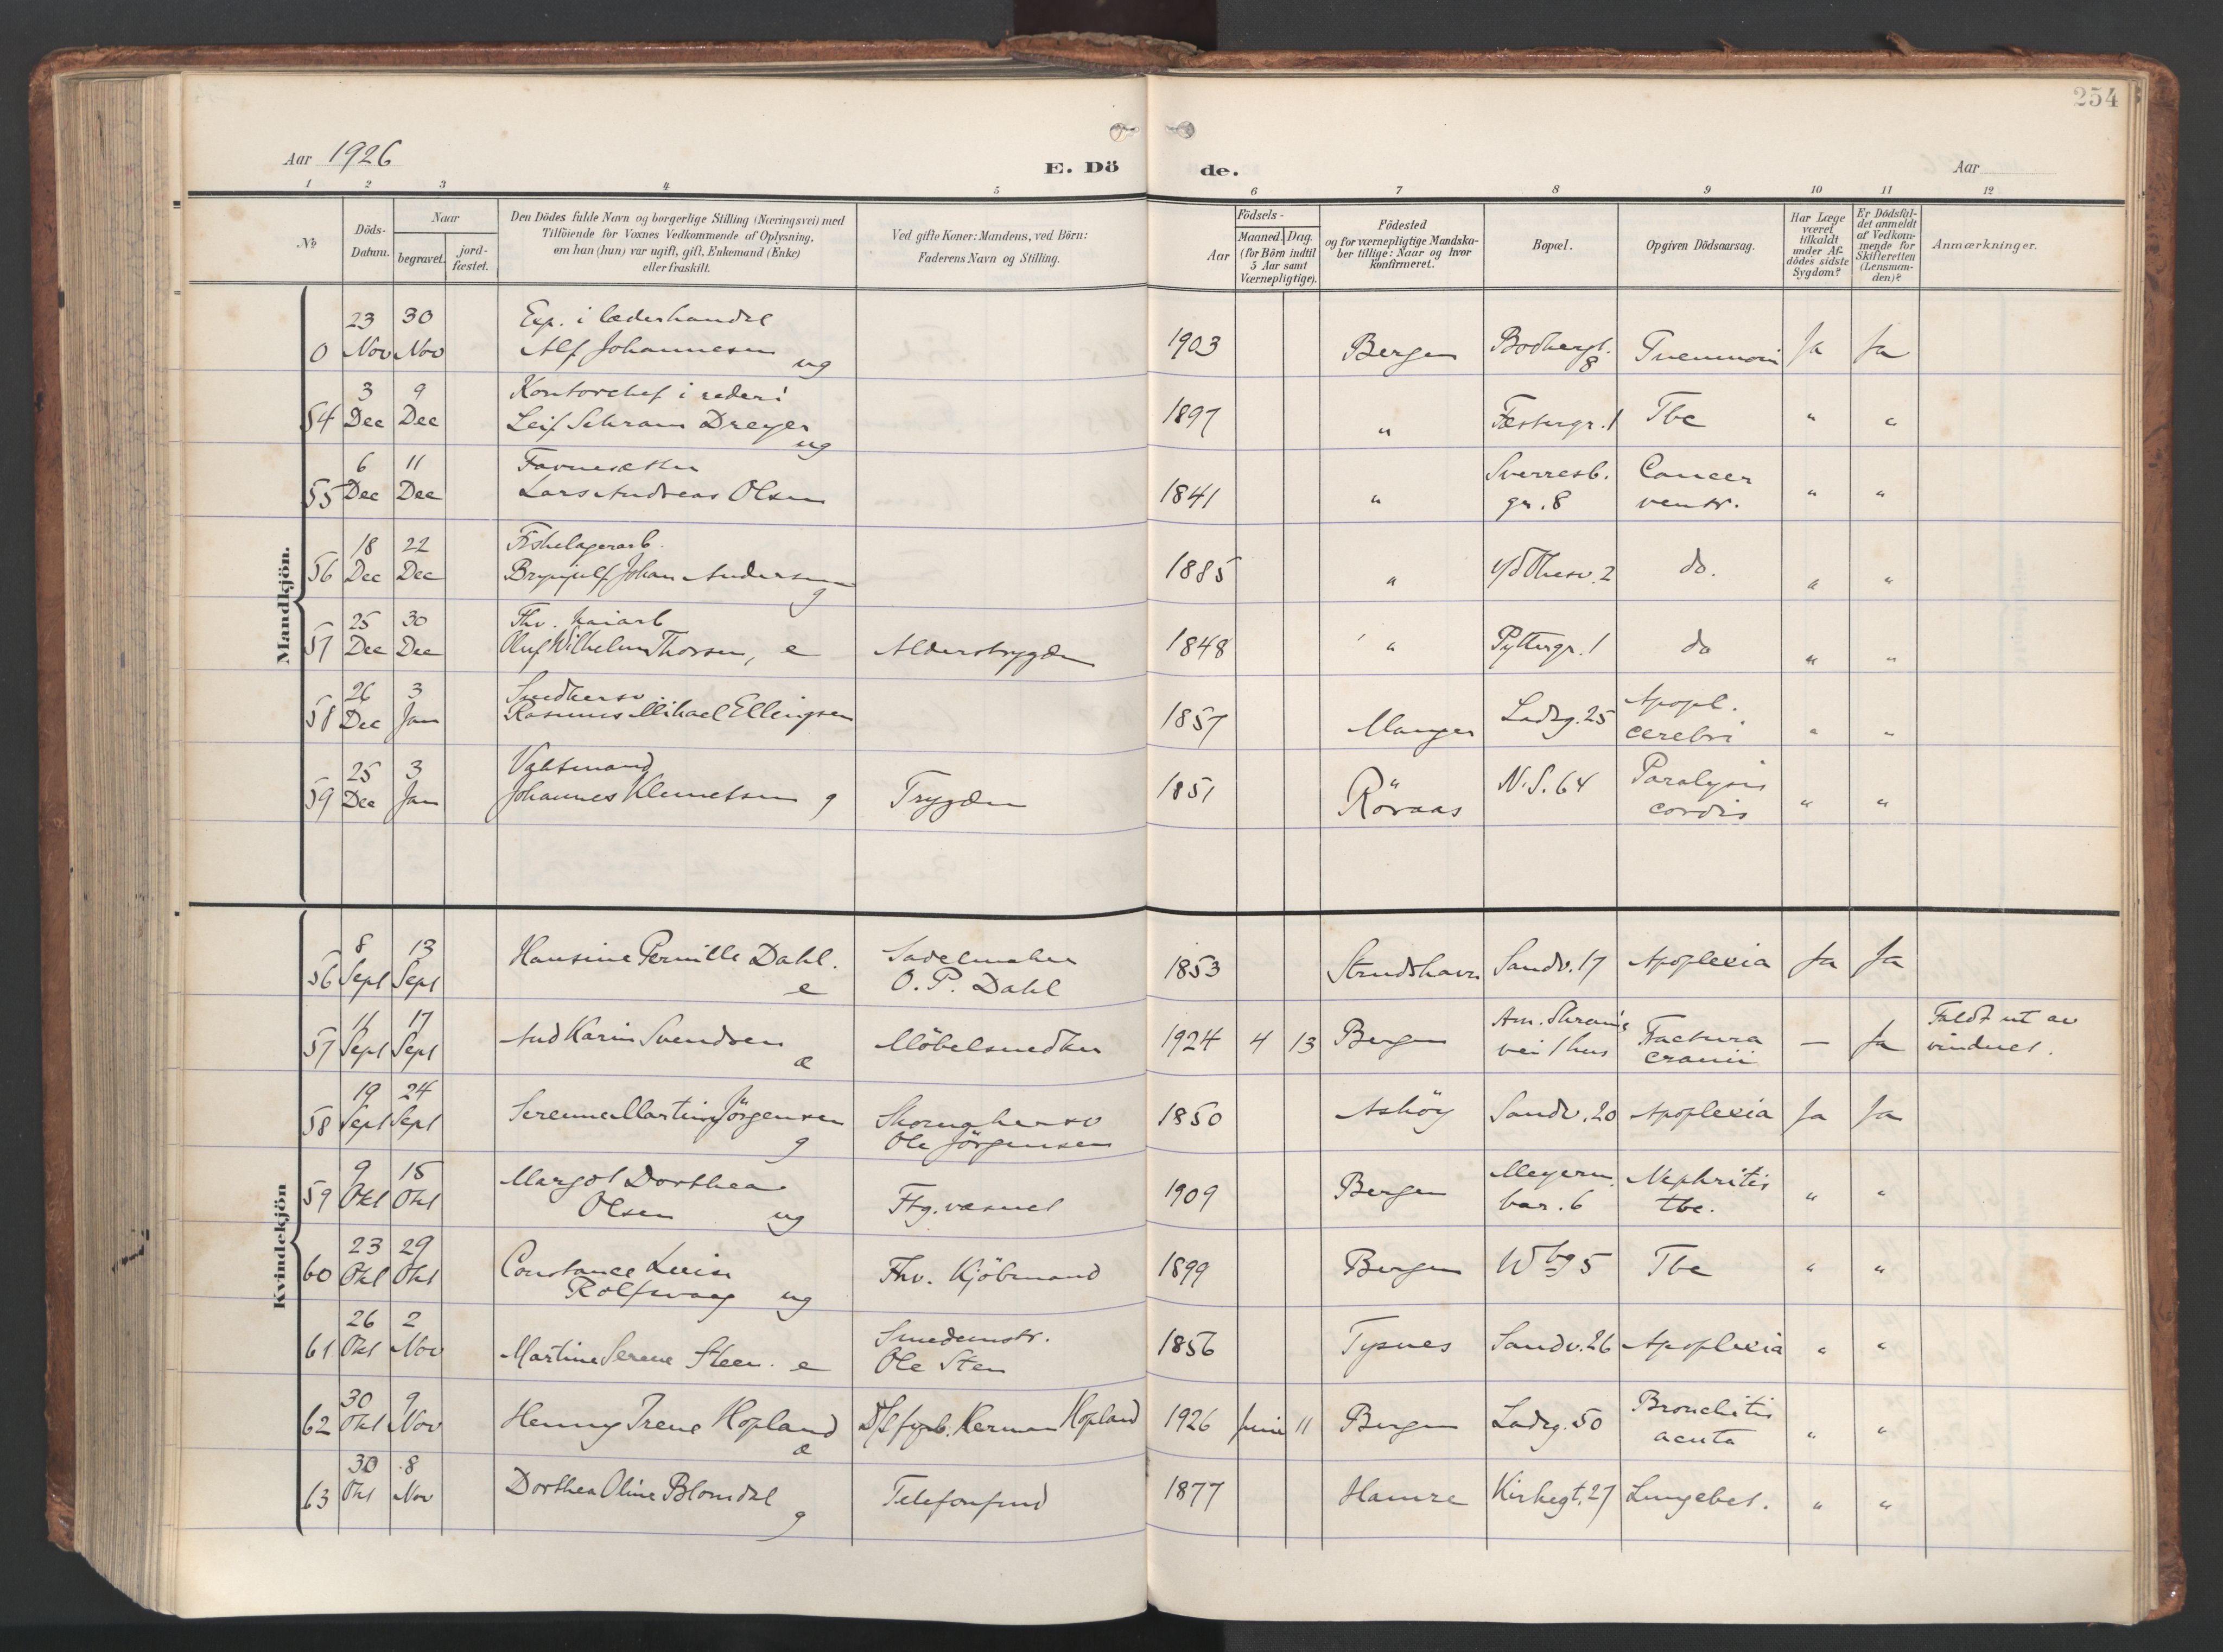 254
Aar 1926
E. Dö de.
Aar
1 2 3 4 5 6 7 8 9 10 11 12
No
Döds-Datum.
Naar
begravet.
jord-fæstet.
Den Dödes fulde Navn og borgerlige Stilling (Næringsvei) med
Tilföiende for Voxnes Vedkommende af Oplysning,
om han (hun) var ugift, gift, Enkemand (Enke)
eller fraskilt.
Ved gifte Koner: Mandens, ved Börn:
Faderens Navn og Stilling.
Födsels-
Aar
Maaned. Dag.
(for Börn indtil
5 Aar samt
Værnepligtige).
Födested
og for værnepligtige Mandska-
ber tillige: Naar og hvor
Konfirmeret.
Bopæl.
Opgiven Dödsaarsag.
Har Læge
været
tilkaldt
under Af-
dödes sidste
Sygdom?
Er Dödsfal-
det anmeldt
af Vedkom-
mende for
Skifteretten
(Lensman-
den)?
Anmærkninger.
Mandkjön.
23 30 Exp. i læderhandel
0 Nov Nov Alf Johannesen ug 1903 Bergen 8 Ja Ja
3 9 Kontorchef i rederi
54 Dec Dec Leif Schram Dreyer ug 1897 " Fæstergr. 1 Tbc " "
6 11 Sverresb. Cancer
55 Dec Dec Lars Andreas Olsen 1841 " gr. 8 ventr. " "
18 22 Fiskelagerarb.
56 Dec Dec Brynjulf Johan Andersen g 1885 " 2 do. " "
25 30 Fhv. kaiarb
57 Dec Dec Oluf Wilhelm Thorsen, e Alderstrygden 1848 " Pyttergr. 1 do " "
26 3 Snedkersv Apopl.
58 Dec Jan Rasmus Mikael Ellingsen 1857 Manger Ladeg. 25 cerebri " "
25 3 Vaktmand " Paralysis
59 Dec Jan Johannes Klemetsen g Trygden 1851 Röraas N. S. 64 cordis " "
Kvindekjön
8 13 Hansine Pernille Dahl. Sadelmaker
56 Sept Sept e O. P. Dahl 1853 Strudshavn Sandv. 17 Apoplexia Ja Ja
11 17 Am. Skrams Fractura Faldt ut av
57 Sept Sept Aud Karin Svendsen æ Möbelsnedker 1924 4 13 Bergen vei 1 hus cranii — Ja vinduet.
19 24 Skomakersv
58 Sept Sept Serenne Martine Jörgensen g Ole Jörgensen 1850 Asköy Sandv. 20 Apoplexia Ja Ja
9 15 Margot Dorthea Meyerm. Nephritis
59 Okt Okt Olsen ug Ftg. væsnet 1909 Bergen bar. 6 tbc. " "
23 29 Constance Luise
60 Okt Okt Rolfsvaag ug Fhv. Kjöbmand 1899 Bergen 5 Tbc " "
26 2 Smedemstr.
61 Okt Nov Martine Serene Steen. e Ole Sten 1856 Tysnes Sandv. 26 Apoplexia " "
30 9 Bronchitis
62 Okt Nov Henny Irene Hopland æ D/S fyrb. Herman Hopland 1926 Juni 11 Bergen Ladeg. 50 acuta " "
30 8
63 Okt Nov Dorthea Oline Blomdal g Telefonfmd 1877 Hamre Kirkegt. 27 Lungebet. " "